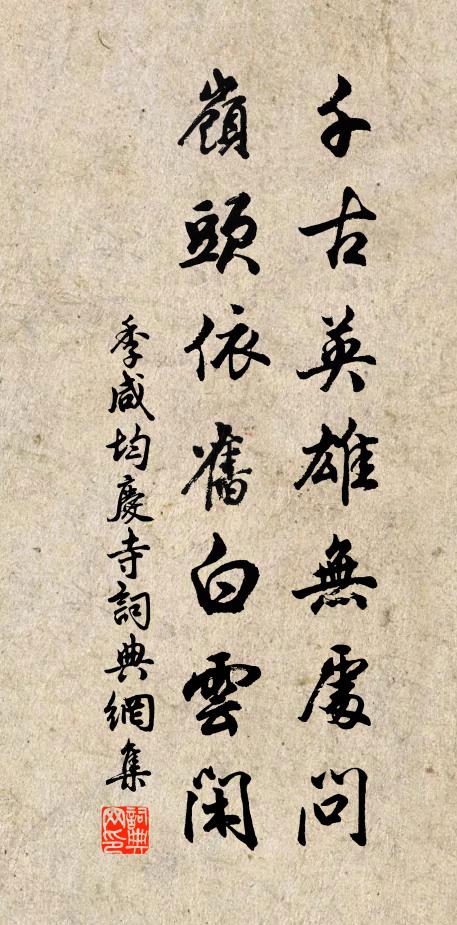 千古英雄無處問
嶺頭依舊白雲閑
季咸均慶寺詞典網集
詞典網印